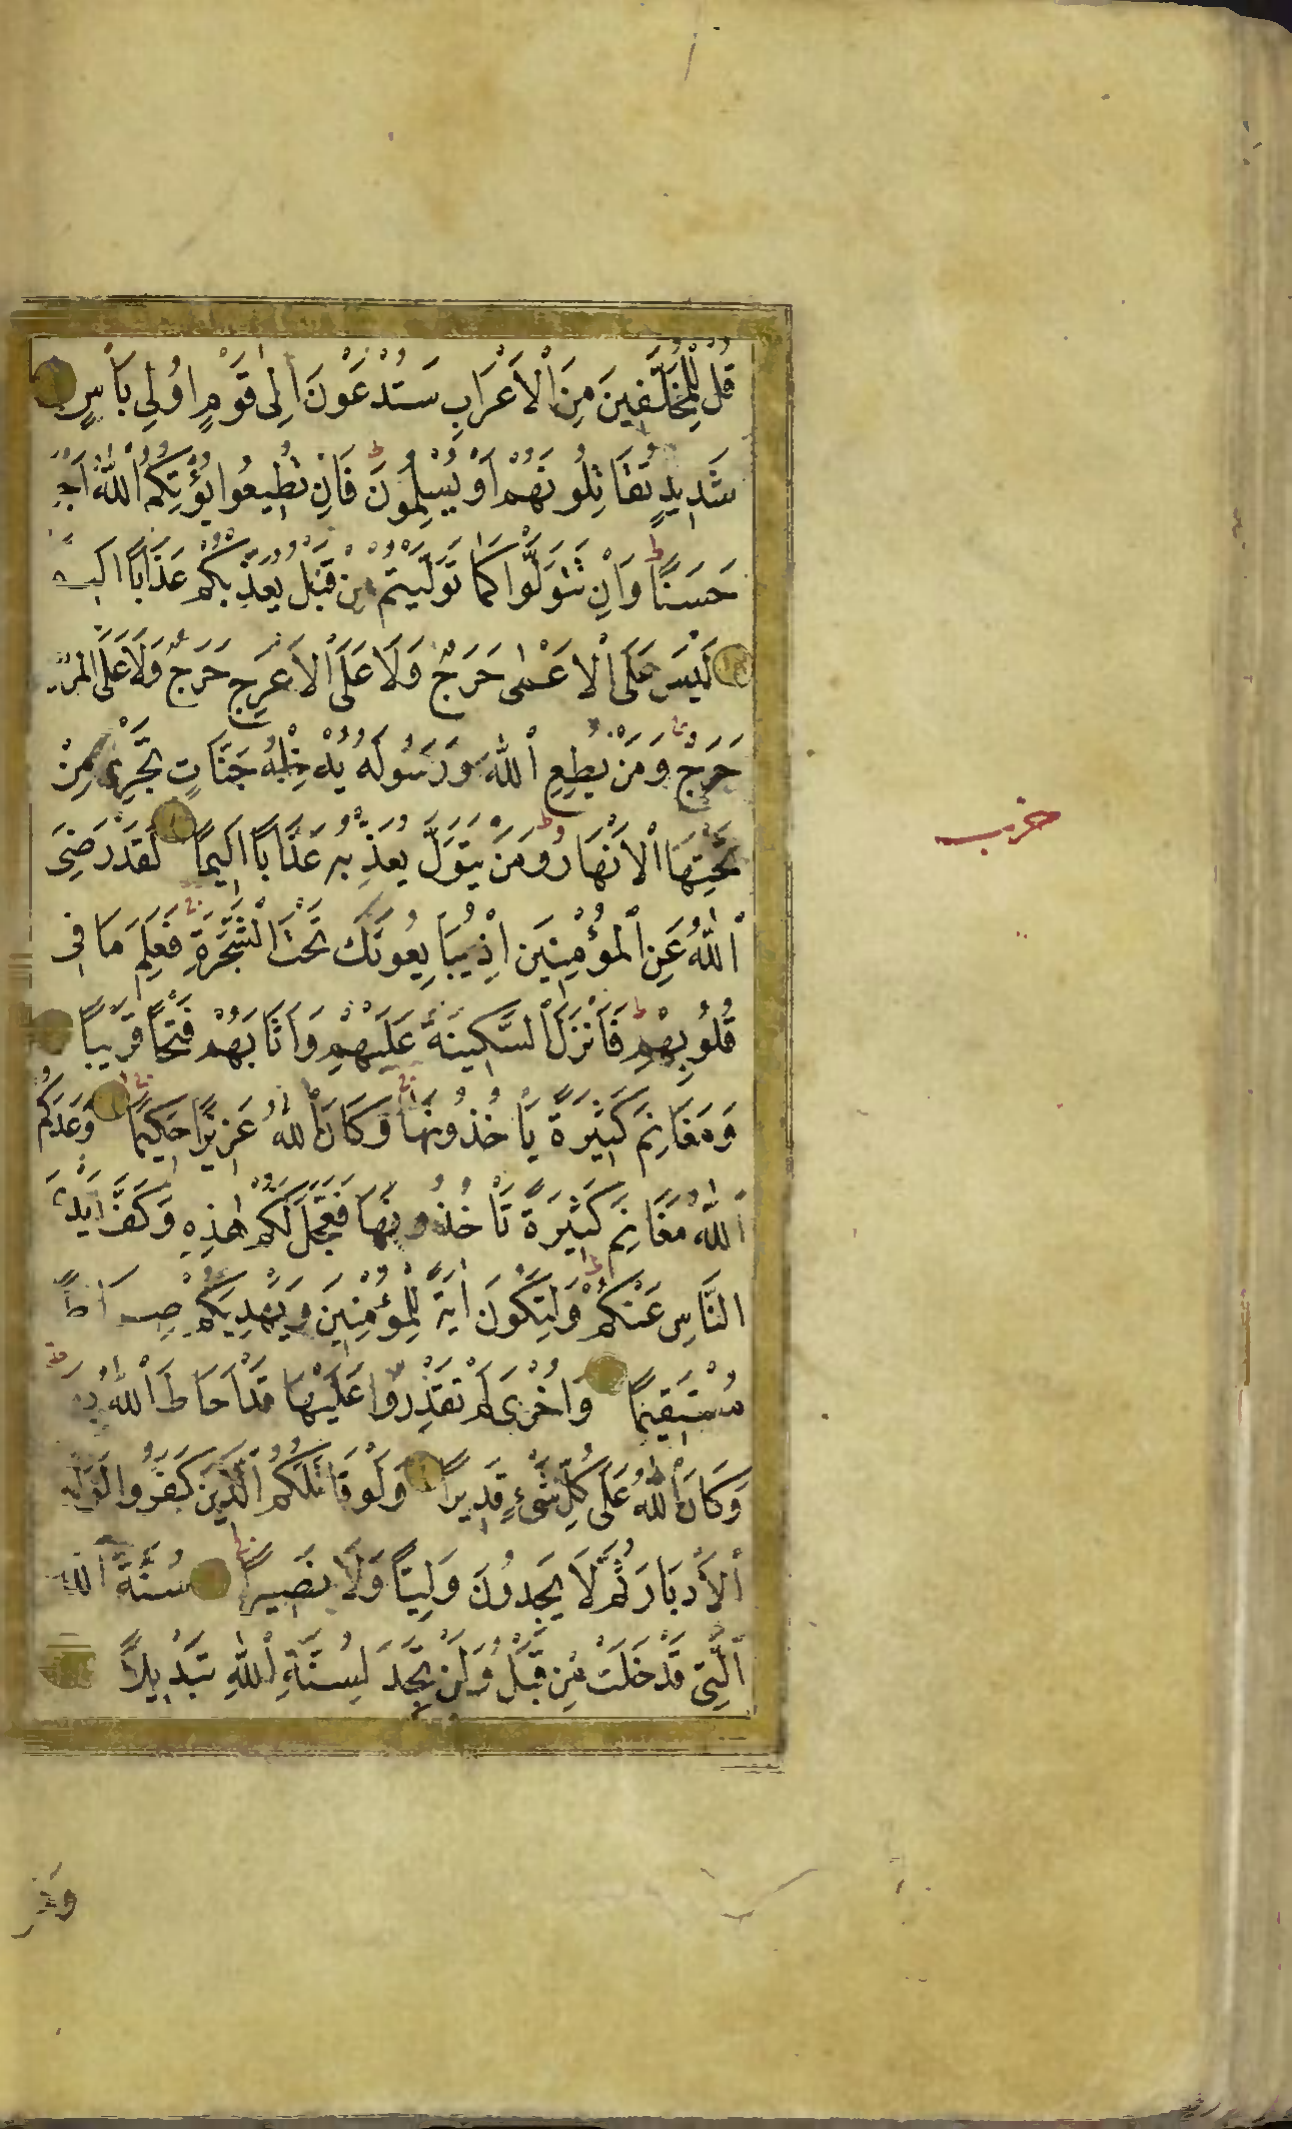 قُلْ لِلْمُخَلَّفِينَ مِنَ الْأَعْرَابِ سَتُدْعَوْنَ اِلٰى قَوْمٍ اُولِي بَأْسٍ
شَدِيدٍ تُقَاتِلُونَهُمْ اَوْ يُسْلِمُونَ ط فَاِنْ تُطِيعُوا يُؤْتِكُمُ اللّٰهُ اَجْرًا
حَسَنًا ط وَاِنْ تَتَوَلَّوْا كَمَا تَوَلَّيْتُمْ مِنْ قَبْلُ يُعَذِّبْكُمْ عَذَابًا اَلِيمًا
لَيْسَ عَلَى الْاَعْمٰى حَرَجٌ وَلَا عَلَى الْاَعْرَجِ حَرَجٌ وَلَا عَلَى الْمَرِيضِ
حَرَجٌ ط وَمَنْ يُطِعِ اللّٰهَ وَرَسُولَهُ يُدْخِلْهُ جَنَّاتٍ تَجْرِي مِنْ
تَحْتِهَا الْاَنْهَارُ ط وَمَنْ يَتَوَلَّ يُعَذِّبْهُ عَذَابًا اَلِيمًا لَقَدْ رَضِيَ
اللّٰهُ عَنِ الْمُؤْمِنِينَ اِذْ يُبَايِعُونَكَ تَحْتَ الشَّجَرَةِ فَعَلِمَ مَا فِي
قُلُوبِهِمْ ط فَاَنْزَلَ السَّكِينَةَ عَلَيْهِمْ وَاَثَابَهُمْ فَتْحًا قَرِيبًا
وَمَغَانِمَ كَثِيرَةً يَأْخُذُونَهَا وَكَانَ اللّٰهُ عَزِيزًا حَكِيمًا وَعَدَكُمُ
اللّٰهُ مَغَانِمَ كَثِيرَةً تَأْخُذُونَهَا فَعَجَّلَ لَكُمْ هٰذِهِ وَكَفَّ اَيْدِيَ
النَّاسِ عَنْكُمْ ط وَلِتَكُونَ اٰيَةً لِلْمُؤْمِنِينَ وَيَهْدِيَكُمْ صِرَاطًا
مُسْتَقِيمًا وَاُخْرٰى لَمْ تَقْدِرُوا عَلَيْهَا قَدْ اَحَاطَ اللّٰهُ بِهَا ط
وَكَانَ اللّٰهُ عَلٰى كُلِّ شَيْءٍ قَدِيرًا وَلَوْ قَاتَلَكُمُ الَّذِينَ كَفَرُوا لَوَلَّوُا
الْاَدْبَارَ ثُمَّ لَا يَجِدُونَ وَلِيًّا وَلَا نَصِيرًا سُنَّةَ اللّٰهِ
الَّتِي قَدْ خَلَتْ مِنْ قَبْلُ وَلَنْ تَجِدَ لِسُنَّةِ اللّٰهِ تَبْدِيلًا
حزب